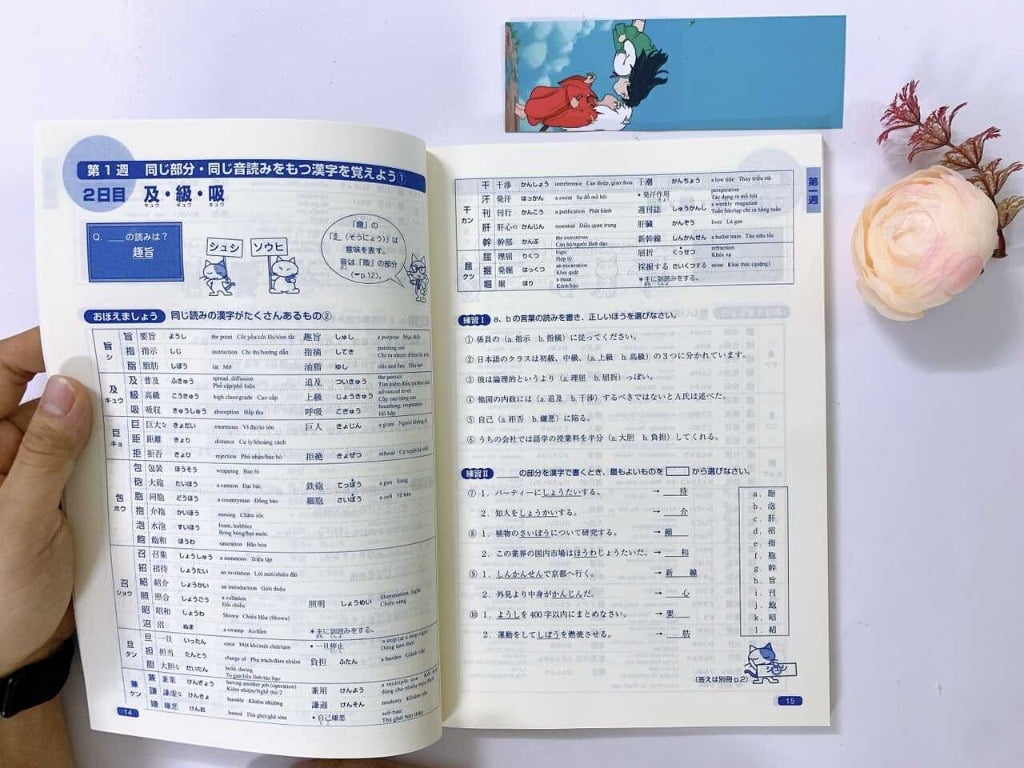 第1週 同じ部分・同じ音読みをもつ漢字を覚えよう①
2日目 及・級・吸
キュウ キュウ キュウ
Q. ＿＿の読みは？
趣旨
シュシ
ソウヒ
「趣」の
「走（そうにょう）」は
意味を表す。
音は「取」の部分
(☞p.12)。
おぼえましょう 同じ読みの漢字がたくさんあるもの②
旨 シ
旨 要旨 ようし the point 趣旨 しゅし a purpose Mục đích
指 指示 しじ instruction Chỉ thị/hướng dẫn 指摘 してき pointing out
脂 脂肪 しぼう fat Mỡ 油脂 ゆし
及 キュウ
及 普及 ふきゅう spread, diffusion Phổ cập/phổ biến 追及 ついきゅう
級 高級 こうきゅう high class/grade Cao cấp 上級 じょうきゅう advanced level
吸 吸収 きゅうしゅう absorption Hấp thu 呼吸 こきゅう breathing, respiration Hô hấp
巨 キョ
巨 巨大な きょだい enormous Vĩ đại/to lớn 巨人 きょじん a giant
距 距離 きょり distance Cự ly/khoảng cách
拒 拒否 きょひ rejection 拒絶 きょぜつ refusal
包 ホウ
包 包装 ほうそう wrapping Bao bì
砲 大砲 たいほう a cannon Đại bác 鉄砲 てっぽう a gun Súng
胞 同胞 どうほう a countryman Đồng bào 細胞 さいぼう a cell Tế bào
抱 介抱 かいほう nursing Chăm sóc
泡 水泡 すいほう foam, bubbles Bong bóng/bọt nước
飽 飽和 ほうわ saturation Bão hòa
召 ショウ
召 召集 しょうしゅう a summons Triệu tập
招 招待 しょうたい an invitation Lời mời/chiêu đãi
紹 紹介 しょうかい an introduction Giới thiệu
照 照合 しょうごう a collation Đối chiếu 照明 しょうめい illumination, light Chiếu sáng
昭 昭和 しょうわ Showa Chiêu Hòa (Showa)
沼 沼 ぬま a swamp Ao/đầm ＊主に訓読みをする。
旦 タン
旦 一旦 いったん once 一旦停止 a stop (at a stop sign) Dừng tạm thời
担 担当 たんとう charge of Phụ trách/đảm nhiệm 負担 ふたん a burden Gánh vác
胆 大胆な だいたん bold, daring
兼 ケン
兼 兼業 けんぎょう having another job (operation) 兼用 けんよう a multiple use
謙 謙虚な けんきょ humble Khiêm nhường 謙遜 けんそん modesty Khiêm tốn
嫌 嫌悪 けんお hatred 自己嫌悪 self-hate
14
第一週
干 カン
干 干渉 かんしょう interference Can thiệp, giao thoa 干潮 かんちょう a low tide Thủy triều rút
汗 発汗 はっかん a sweat Sự đổ mồ hôi 発汗作用 perspiration Tác dụng ra mồ hôi
刊 刊行 かんこう a publication Phát hành 週刊誌 しゅうかんし a weekly magazine
肝 肝心の かんじん essential Điều quan trọng 肝臓 かんぞう liver Lá gan
幹 幹部 かんぶ the executives Cán bộ/người lãnh đạo 新幹線 しんかんせん a bullet train Tàu siêu tốc
屈 クツ
屈 理屈 りくつ Hợp lý 屈折 くっせつ refraction Khúc xạ
掘 発掘 はっくつ an excavation Khai quật 採掘する さいくつする mine Khai thác (quặng)
堀 堀 ほり a moat Kênh/hào ＊主に訓読みをする。
練習Ⅰ a、bの言葉の読みを書き、正しいほうを選びなさい。
① 係員の（a. 指示 b. 指摘）に従ってください。
② 日本語のクラスは初級、中級、（a. 上級 b. 高級）の3つに分かれています。
③ 彼は論理的というより（a. 理屈 b. 屈折）っぽい。
④ 他国の内政には（a. 追及 b. 干渉）するべきではないとA氏は述べた。
⑤ 自己（a. 拒否 b. 嫌悪）に陥る。
⑥ うちの会社では語学の授業料を半分（a. 大胆 b. 負担）してくれる。
練習Ⅱ ＿＿の部分を漢字で書くとき、最もよいものを□から選びなさい。
⑦ 1. パーティーにしょうたいする。 → ＿＿待
2. 知人をしょうかいする。 → ＿＿介
⑧ 1. 植物のさいぼうについて研究する。 → 細＿＿
2. この業界の国内市場はほうわじょうたいだ。 → ＿＿和
⑨ 1. しんかんせんで京都へ行く。 → 新＿＿線
2. 外見より中身がかんじんだ。 → ＿＿心
⑩ 1. ようしを400字以内にまとめなさい。 → 要＿＿
2. 運動をしてしぼうを燃焼させる。 → ＿＿肪
a. 脂
b. 泡
c. 肝
d. 招
e. 指
f. 胞
g. 幹
h. 旨
i. 刊
j. 飽
k. 昭
l. 紹
(答えは別冊p.2)
15